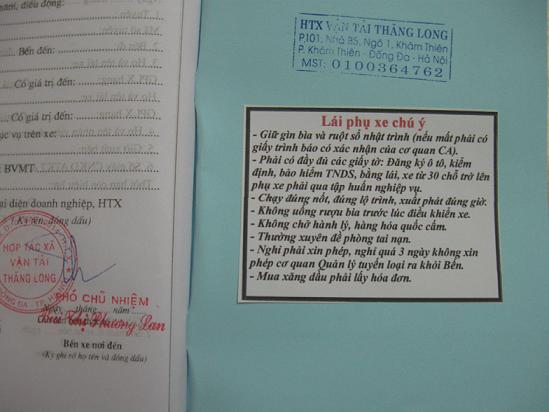 năm, điều động:
Bến đến:
Có giá trị đến:
Có giá trị đến:
BVMT
ại diện doanh nghiệp, HTX
(Ký tên, đóng dấu)
HỢP TÁC XÃ
VẬN TẢI
THĂNG LONG
PHÓ CHỦ NHIỆM
Ngày tháng năm
Bùi Thị Phương Lan
Bến xe nơi đến
(Ký ghi rõ họ tên và đóng dấu)
HTX VẬN TẢI THĂNG LONG
P.101, Nhà B5, Ngõ 1, Khâm Thiên
P. Khâm Thiên - Đống Đa - Hà Nội
MST: 0100364762
Lái phụ xe chú ý
- Giữ gìn bìa và ruột sổ nhật trình (nếu mất phải có
giấy trình báo có xác nhận của cơ quan CA).
- Phải có đầy đủ các giấy tờ: Đăng ký ô tô, kiểm
định, bảo hiểm TNDS, bằng lái, xe từ 30 chỗ trở lên
phụ xe phải qua tập huấn nghiệp vụ.
- Chạy đúng nốt, đúng lộ trình, xuất phát đúng giờ.
- Không uống rượu bia trước lúc điều khiển xe.
- Không chở hành lý, hàng hóa quốc cấm.
- Thường xuyên đề phòng tai nạn.
- Nghỉ phải xin phép, nghỉ quá 3 ngày không xin
phép cơ quan Quản lý tuyến loại ra khỏi Bến.
- Mua xăng dầu phải lấy hóa đơn.